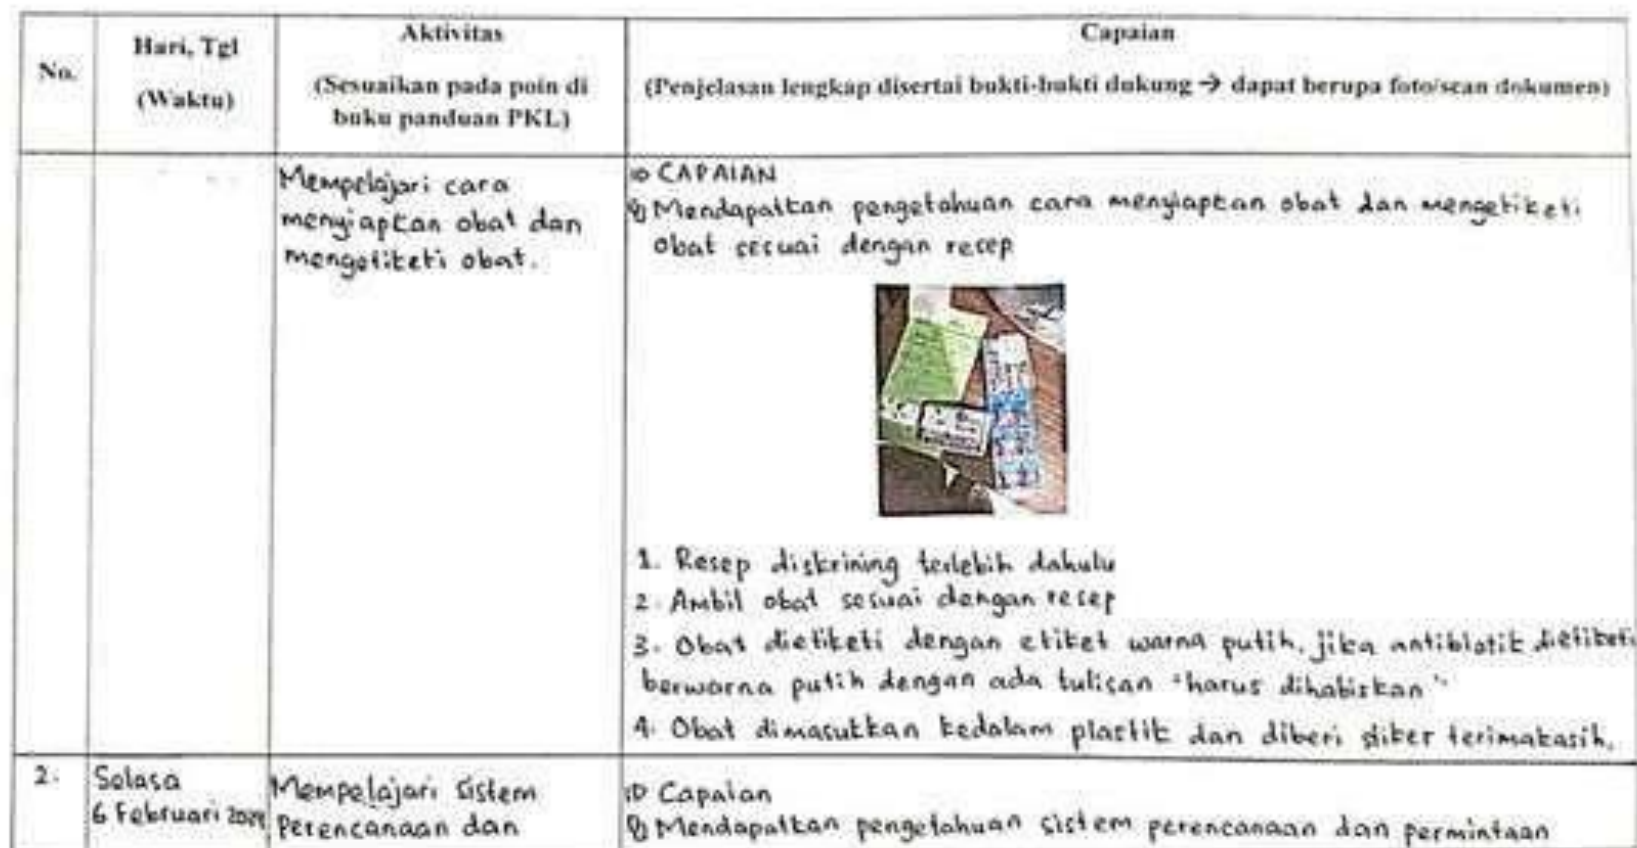 No.
Hari, Tgl
(Waktu)
Aktivitas
(Sesuaikan pada poin di
buku panduan PKL)
Capaian
(Penjelasan lengkap disertai bukti-bukti dukung → dapat berupa foto/scan dokumen)
Mempelajari cara
menyiapkan obat dan
mengetiketi obat.
CAPAIAN
Mendapatkan pengetahuan cara menyiapkan obat dan mengetiketi
obat sesuai dengan resep
1. Resep diskrining terlebih dahulu
2. Ambil obat sesuai dengan resep
3. Obat dietiketi dengan etiket warna putih, jika antibiotik dietiketi
berwarna putih dengan ada tulisan "harus dihabiskan"
4. Obat dimasukkan kedalam plastik dan diberi stiker terimakasih.
2.
Selasa
6 Februari
Mempelajari sistem
Perencanaan dan
Capaian
Mendapatkan pengetahuan sistem perencanaan dan permintaan